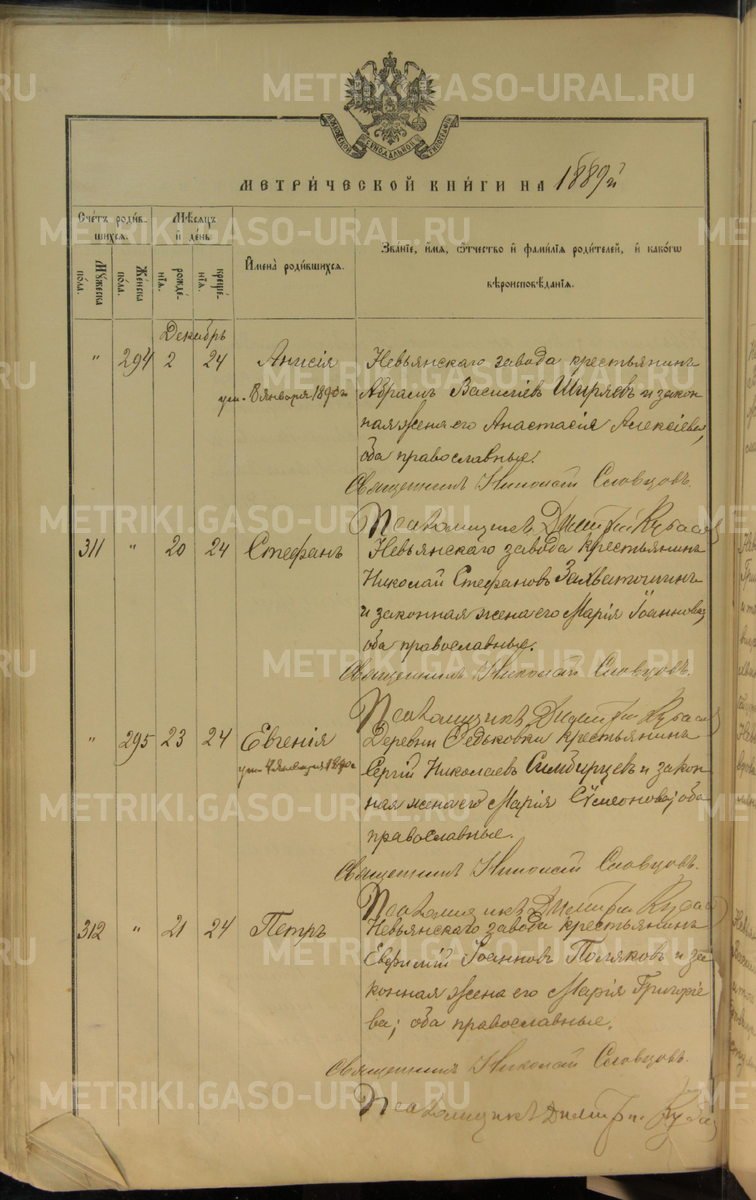 МОСКОВСКОЙ СѴНОДАЛЬНОЙ ТИПОГРАФІИ
МЕТРИ́ЧЕСКОЙ КНИ́ГИ НА 1889й
Сче́тъ роди́в-
шихся.
Му́жеска
по́ла.
Же́нска
по́ла.
Мѣ́сяцъ
и҆ де́нь
рожде́-
нїѧ.
креще́-
нїѧ.
И҆мена̀ роди́вшихся.
Зва́нїе, и҆́мя, ѻ҆́тчество и҆ фами́лїя роди́телей, и҆ како́гѡ
вѣроисповѣ́данїѧ.
Декабрь
" 294 2 24 Анисія Невьянскаго завода крестьянинъ
ум. 8 января 1890 г. Абрамъ Васильевъ Ширяевъ и закон
ная жена его Анастасія Алексіева,
оба православные.
Священникъ Николай Словцовъ.
Псаломщикъ Димитрій
311 " 20 24 Стефанъ Невьянскаго завода крестьянинъ
Николай Стефановъ Захваточинъ
и законная жена его Марія Іоаннова;
оба православные.
Священникъ Николай Словцовъ.
Псаломщикъ Димитрій
" 295 23 24 Евгенія Деревни Федьковки крестьянинъ
ум. января 1890 г. Сергій Николаевъ Симбирцевъ и закон
ная жена его Марія Сѵмеонова; оба
православные.
Священникъ Николай Словцовъ.
Псаломщикъ Димитрій
312 " 21 24 Петръ Невьянскаго завода крестьянинъ
Евфимій Іоанновъ Поляковъ и за
конная жена его Марія Григоріе
ва; оба православные.
Священникъ Николай Словцовъ.
Псаломщикъ Димитрій
METRIKI.GASO-URAL.RU